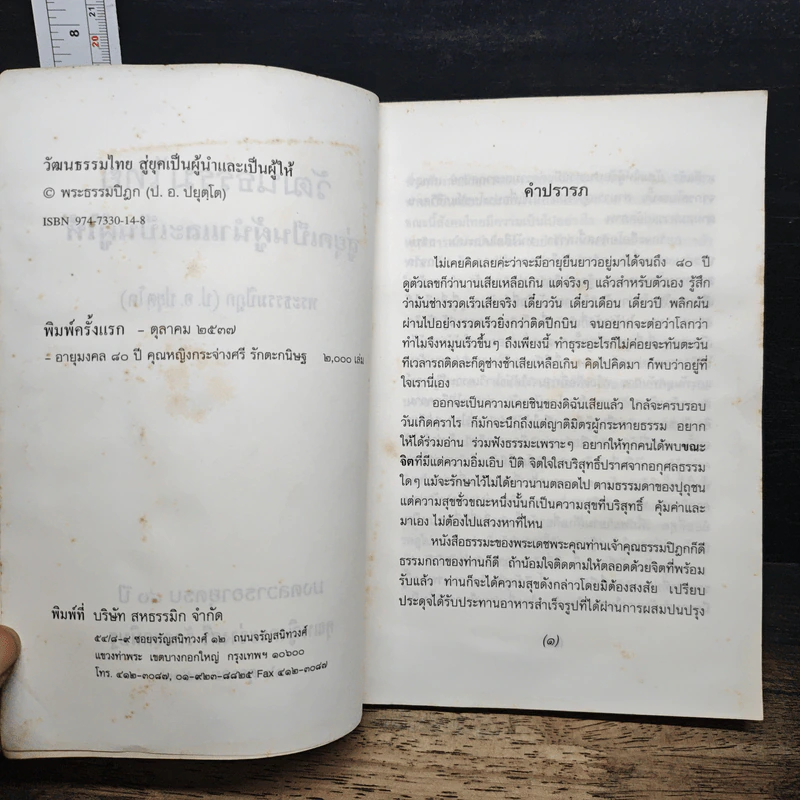 วัฒนธรรมไทย สู่ยุคเป็นผู้นำและเป็นผู้ให้
© พระธรรมปิฎก (ป. อ. ปยุตฺโต)
ISBN 974-7330-14-8
พิมพ์ครั้งแรก - ตุลาคม ๒๕๓๗
- อายุมงคล ๘๐ ปี คุณหญิงกระจ่างศรี รักตะกนิษฐ ๒,๐๐๐ เล่ม
พิมพ์ที่ บริษัท สหธรรมิก จำกัด
๕๔/๘-๙ ซอยจรัญสนิทวงศ์ ๑๒ ถนนจรัญสนิทวงศ์
แขวงท่าพระ เขตบางกอกใหญ่ กรุงเทพฯ ๑๐๖๐๐
โทร. ๔๑๒-๓๐๘๗, ๐๑-๙๒๓-๘๘๒๕ Fax ๔๑๒-๓๐๘๗
คำปรารภ
ไม่เคยคิดเลยค่ะว่าจะมีอายุยืนยาวอยู่มาได้จนถึง ๘๐ ปี
ดูตัวเลขก็ว่านานเสียเหลือเกิน แต่จริงๆ แล้วสำหรับตัวเอง รู้สึก
ว่ามันช่างรวดเร็วเสียจริง เดี๋ยววัน เดี๋ยวเดือน เดี๋ยวปี พลิกผัน
ผ่านไปอย่างรวดเร็วยิ่งกว่าติดปีกบิน จนอยากจะต่อว่าโลกว่า
ทำไมจึงหมุนเร็วขึ้นๆ ถึงเพียงนี้ ทำธุระอะไรก็ไม่ค่อยจะทันตะวัน
ทีเวลารถติดละก็ดูช่างช้าเสียเหลือเกิน คิดไปคิดมา ก็พบว่าอยู่ที่
ใจเรานี่เอง
ออกจะเป็นความเคยชินของดิฉันเสียแล้ว ใกล้จะครบรอบ
วันเกิดคราไร ก็มักจะนึกถึงแต่ญาติมิตรผู้กระหายธรรม อยาก
ให้ได้ร่วมอ่าน ร่วมฟังธรรมะเพราะๆ อยากให้ทุกคนได้พบขณะ
จิตที่มีแต่ความอิ่มเอิบ ปีติ จิตใจใสบริสุทธิ์ปราศจากอกุศลธรรม
ใดๆ แม้จะรักษาไว้ไม่ได้ยาวนานตลอดไป ตามธรรมดาของปุถุชน
แต่ความสุขชั่วขณะหนึ่งนั้นก็เป็นความสุขที่บริสุทธิ์ คุ้มค่าและ
มาเอง ไม่ต้องไปแสวงหาที่ไหน
หนังสือธรรมะของพระเดชพระคุณท่านเจ้าคุณธรรมปิฎกก็ดี
ธรรมกถาของท่านก็ดี ถ้าน้อมใจติดตามให้ตลอดด้วยจิตที่พร้อม
รับแล้ว ท่านก็จะได้ความสุขดังกล่าวโดยมิต้องสงสัย เปรียบ
ประดุจได้รับประทานอาหารสำเร็จรูปที่ได้ผ่านการผสมปนปรุง
(๑)
8
20
21